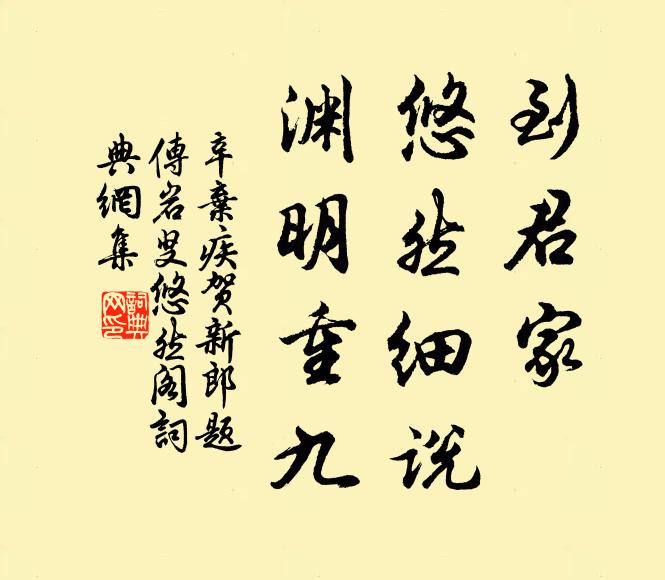 到君家
悠然细说
渊明重九
辛棄疾贺新郎题
傅岩叟悠然阁詞
典網集
詞典网印